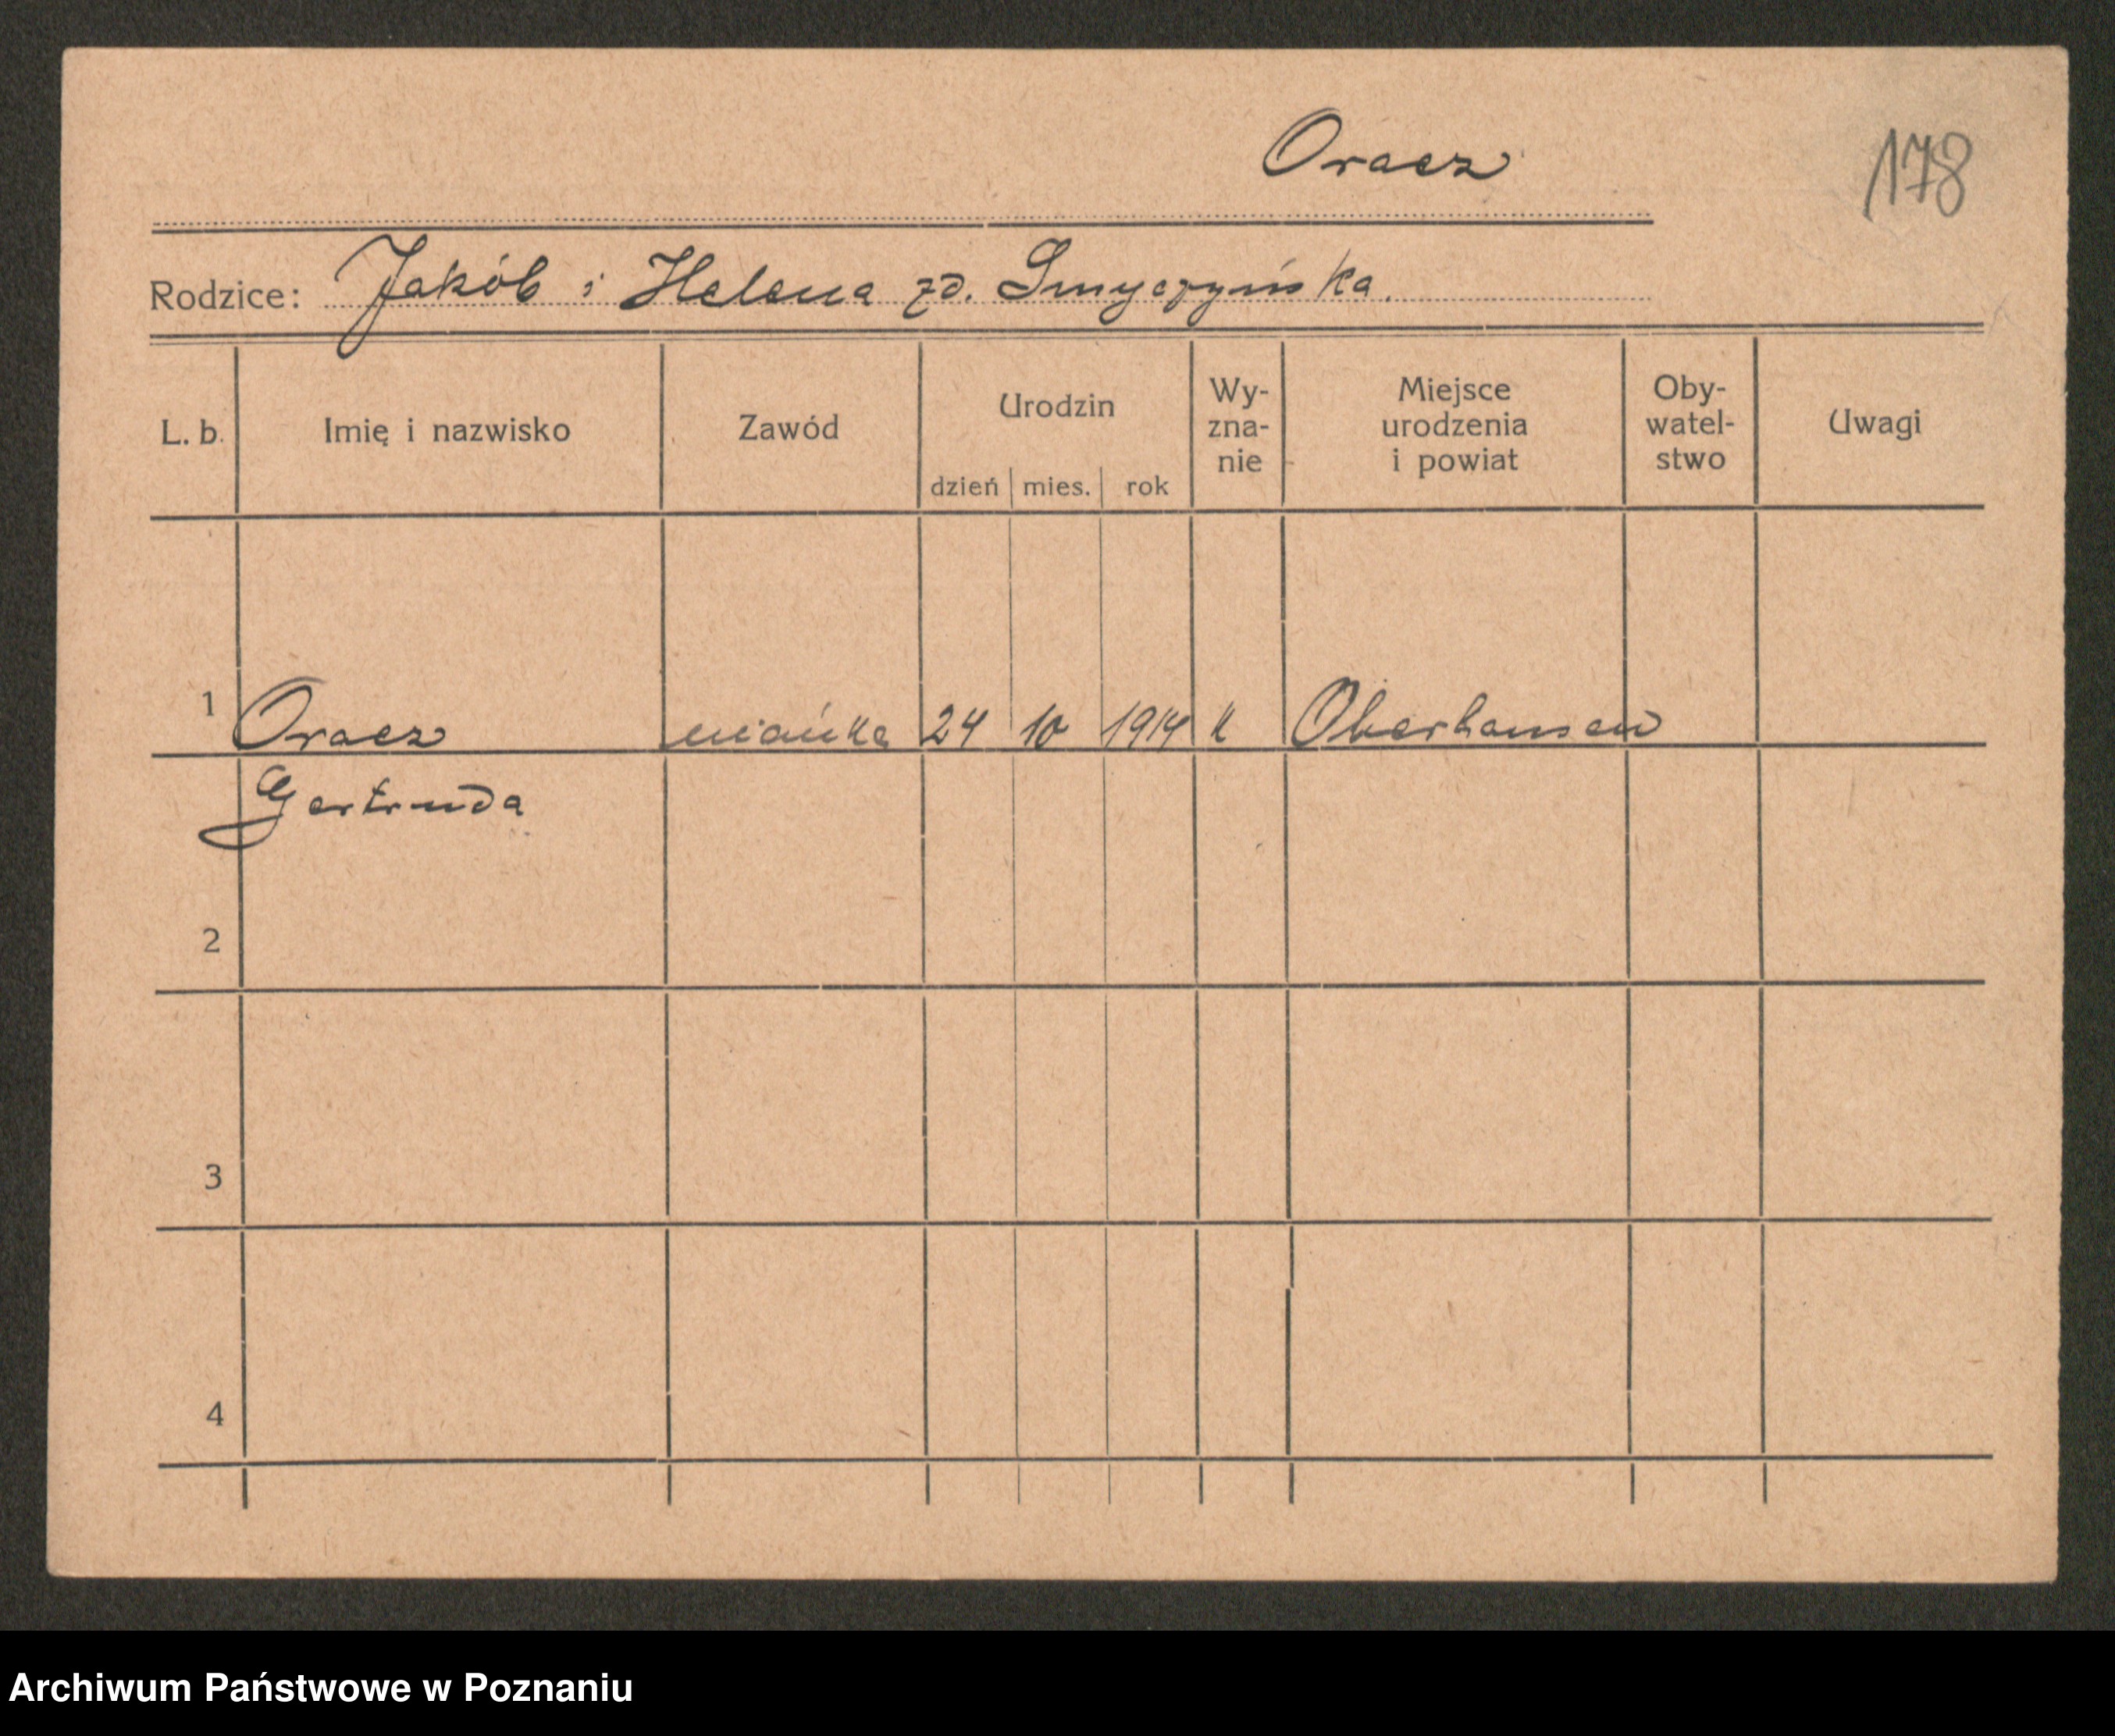 Oracz
178
Rodzice: Jakób i Helena zd. Smyczyńska.
L. b. Imię i nazwisko Zawód Urodzin dzień mies. rok Wy-zna-nie Miejsce urodzenia i powiat Oby-watel-stwo Uwagi
1 Oracz niańka 24 10 1914 k Oberhausen
Gertruda
2
3
4
Archiwum Państwowe w Poznaniu